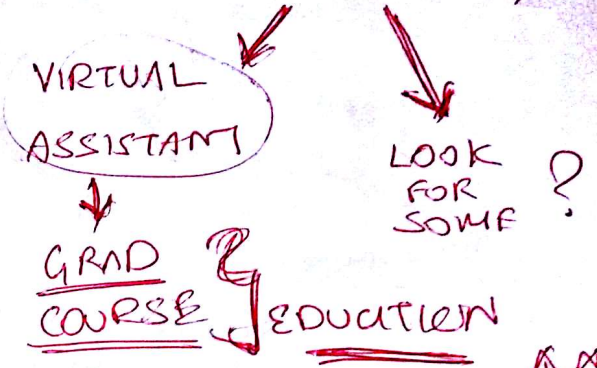 VIRTUAL
ASSISTANT
LOOK
FOR
SOME ?
GRAD
COURSE
EDUCATION